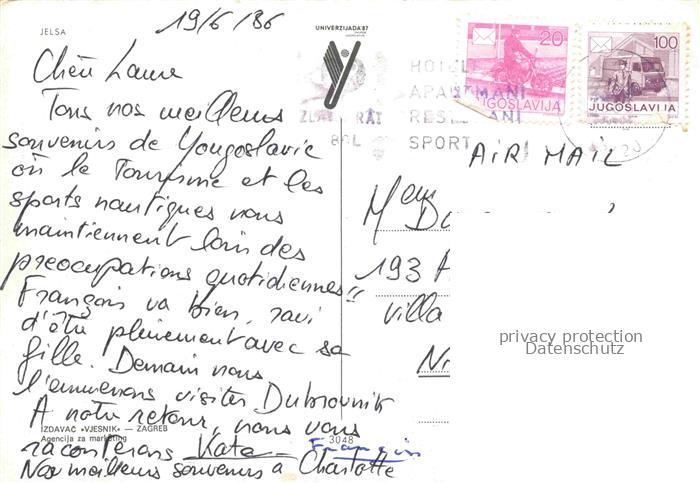 JELSA
19/6/86
UNIVERZIJADA '87
Chère Laure
Tous nos meilleurs
souvenirs de Yougoslavie
où le Tourisme et les
sports nautiques nous
maintiennent loin des
preoccupations quotidiennes!!
François va bien, ravi
d'être pleinement avec sa
fille. Demain nous
l'emmenons visiter Dubrovnik
A notre retour, nous vous
raconterons Kata François
Nos meilleurs souvenirs à Charlotte
IZDAVAČ »VJESNIK« — ZAGREB
Agencija za marketing
3048
20
JUGOSLAVIJA
100
JUGOSLAVIJA
ZLATNI RAT
BOL
HOTELI
APARTMANI
RESTORANI
SPORT
AIR MAIL
193
Villa
privacy protection
Datenschutz